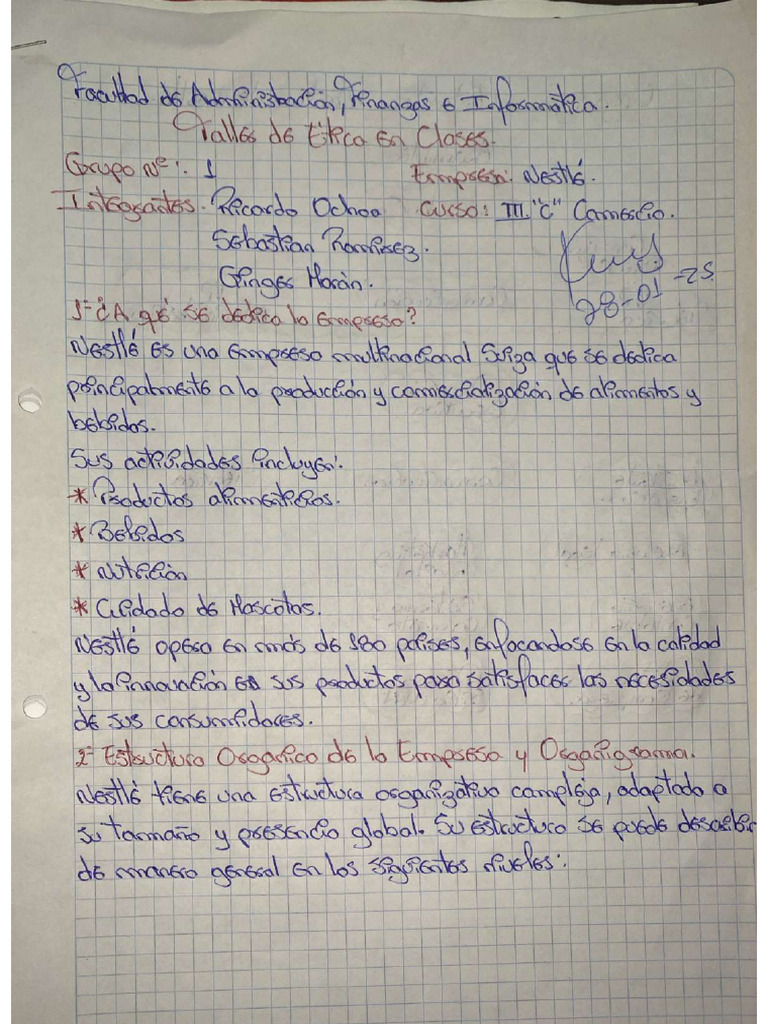 Facultad de Administración, Finanzas e Informática.
Taller de Ética en Clases.
Grupo Nº: 1 Empresa: Nestlé.
Integrantes. Ricardo Ochoa Curso: III "C" Comercio.
Sebastian Ramirez.
Ginger Morán.
28-01-25
1- ¿A qué se dedica la empresa?
Nestlé es una empresa multinacional Suiza que se dedica
principalmente a la producción y comercialización de alimentos y
bebidas.
Sus actividades incluyen:
* Productos alimenticios.
* Bebidas
* Nutrición
* Cuidado de Mascotas.
Nestlé opera en más de 180 países, enfocandose en la calidad
y la innovación en sus productos para satisfacer las necesidades
de sus consumidores.
2- Estructura Organica de la Empresa y Organigrama.
Nestlé tiene una estructura organizativa compleja, adaptada a
su tamaño y presencia global. Su estructura se puede describir
de manera general en los siguientes niveles: